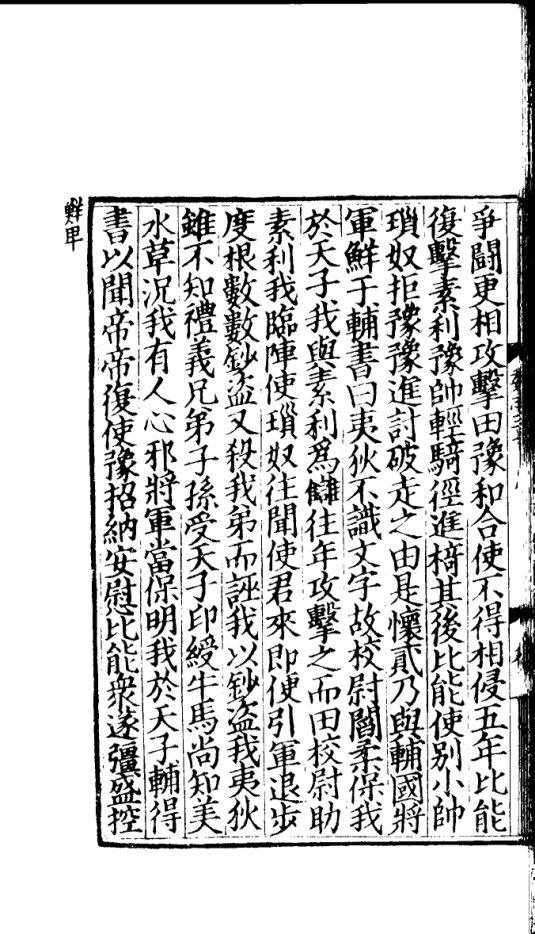 爭鬭更相攻擊田豫和合使不得相侵五年比能
復擊素利豫帥輕騎徑進掎其後比能使别小帥
瑣奴拒豫豫進討破走之由是懷貳乃與輔國將
軍鮮于輔書曰夷狄不識文字故校尉閻柔保我
於天子我與素利爲讎往年攻擊之而田校尉助
素利我臨陣使瑣奴往聞使君來即便引軍退步
度根數數鈔盗又殺我弟而誣我以鈔盗我夷狄
雖不知禮義兄弟子孫受天子印綬牛馬尚知美
水草況我有人心邪將軍當保明我於天子輔得
書以聞帝帝復使豫招納安慰比能衆遂彊盛控
鮮卑